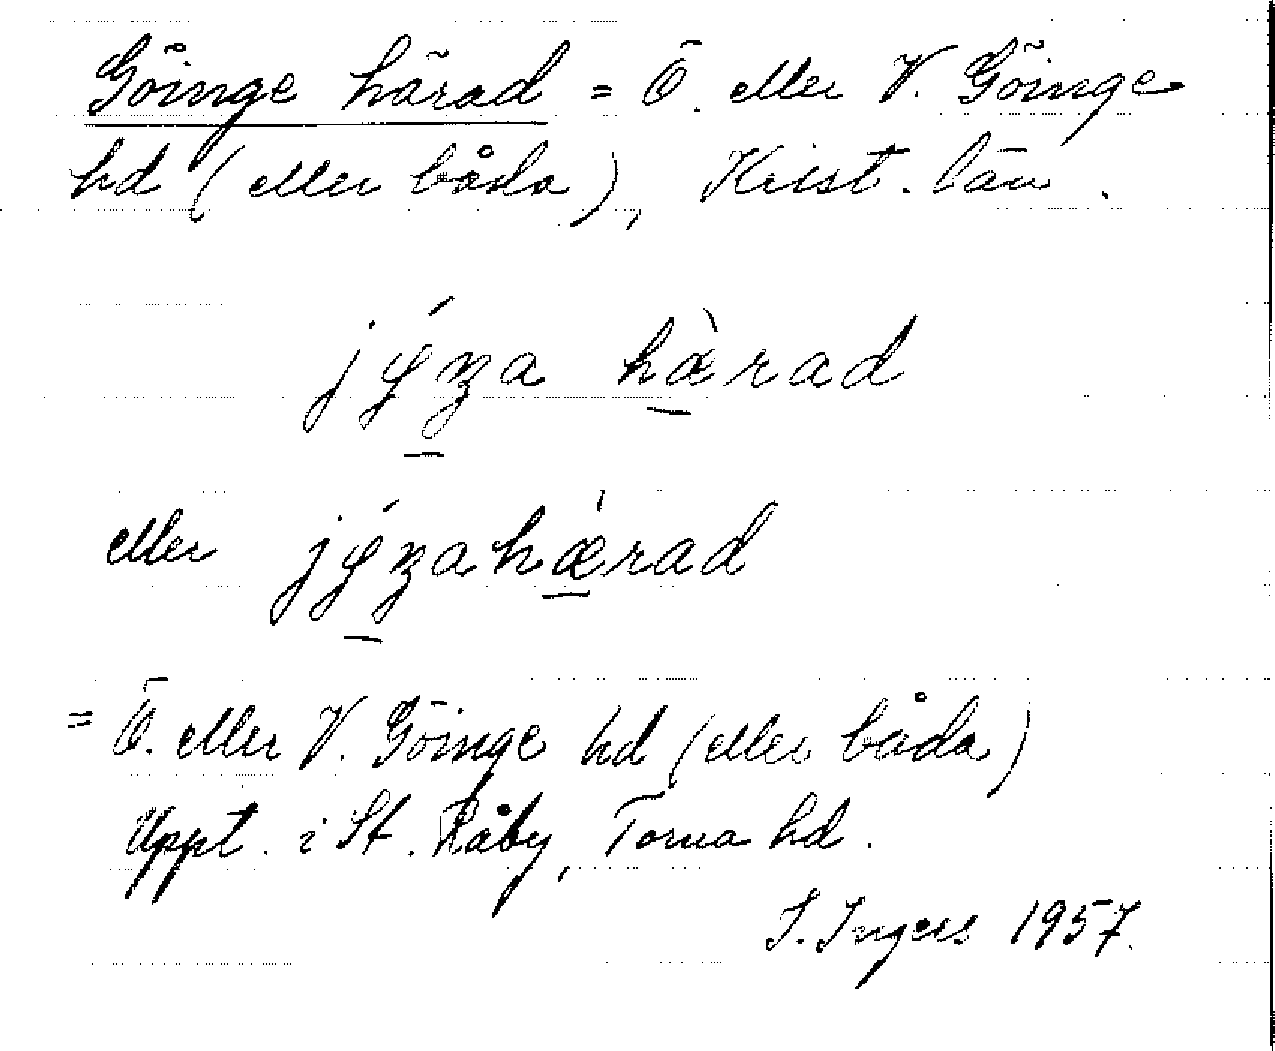 Göinge härad = Ö. eller V. Göinge
hd (eller båda), Krist. län.
jýza hæ̀rad
eller jýzahæ̀rad
= Ö. eller V. Göinge hd (eller båda)
Uppt. i St. Råby, Torna hd.
I. Ingers 1957.